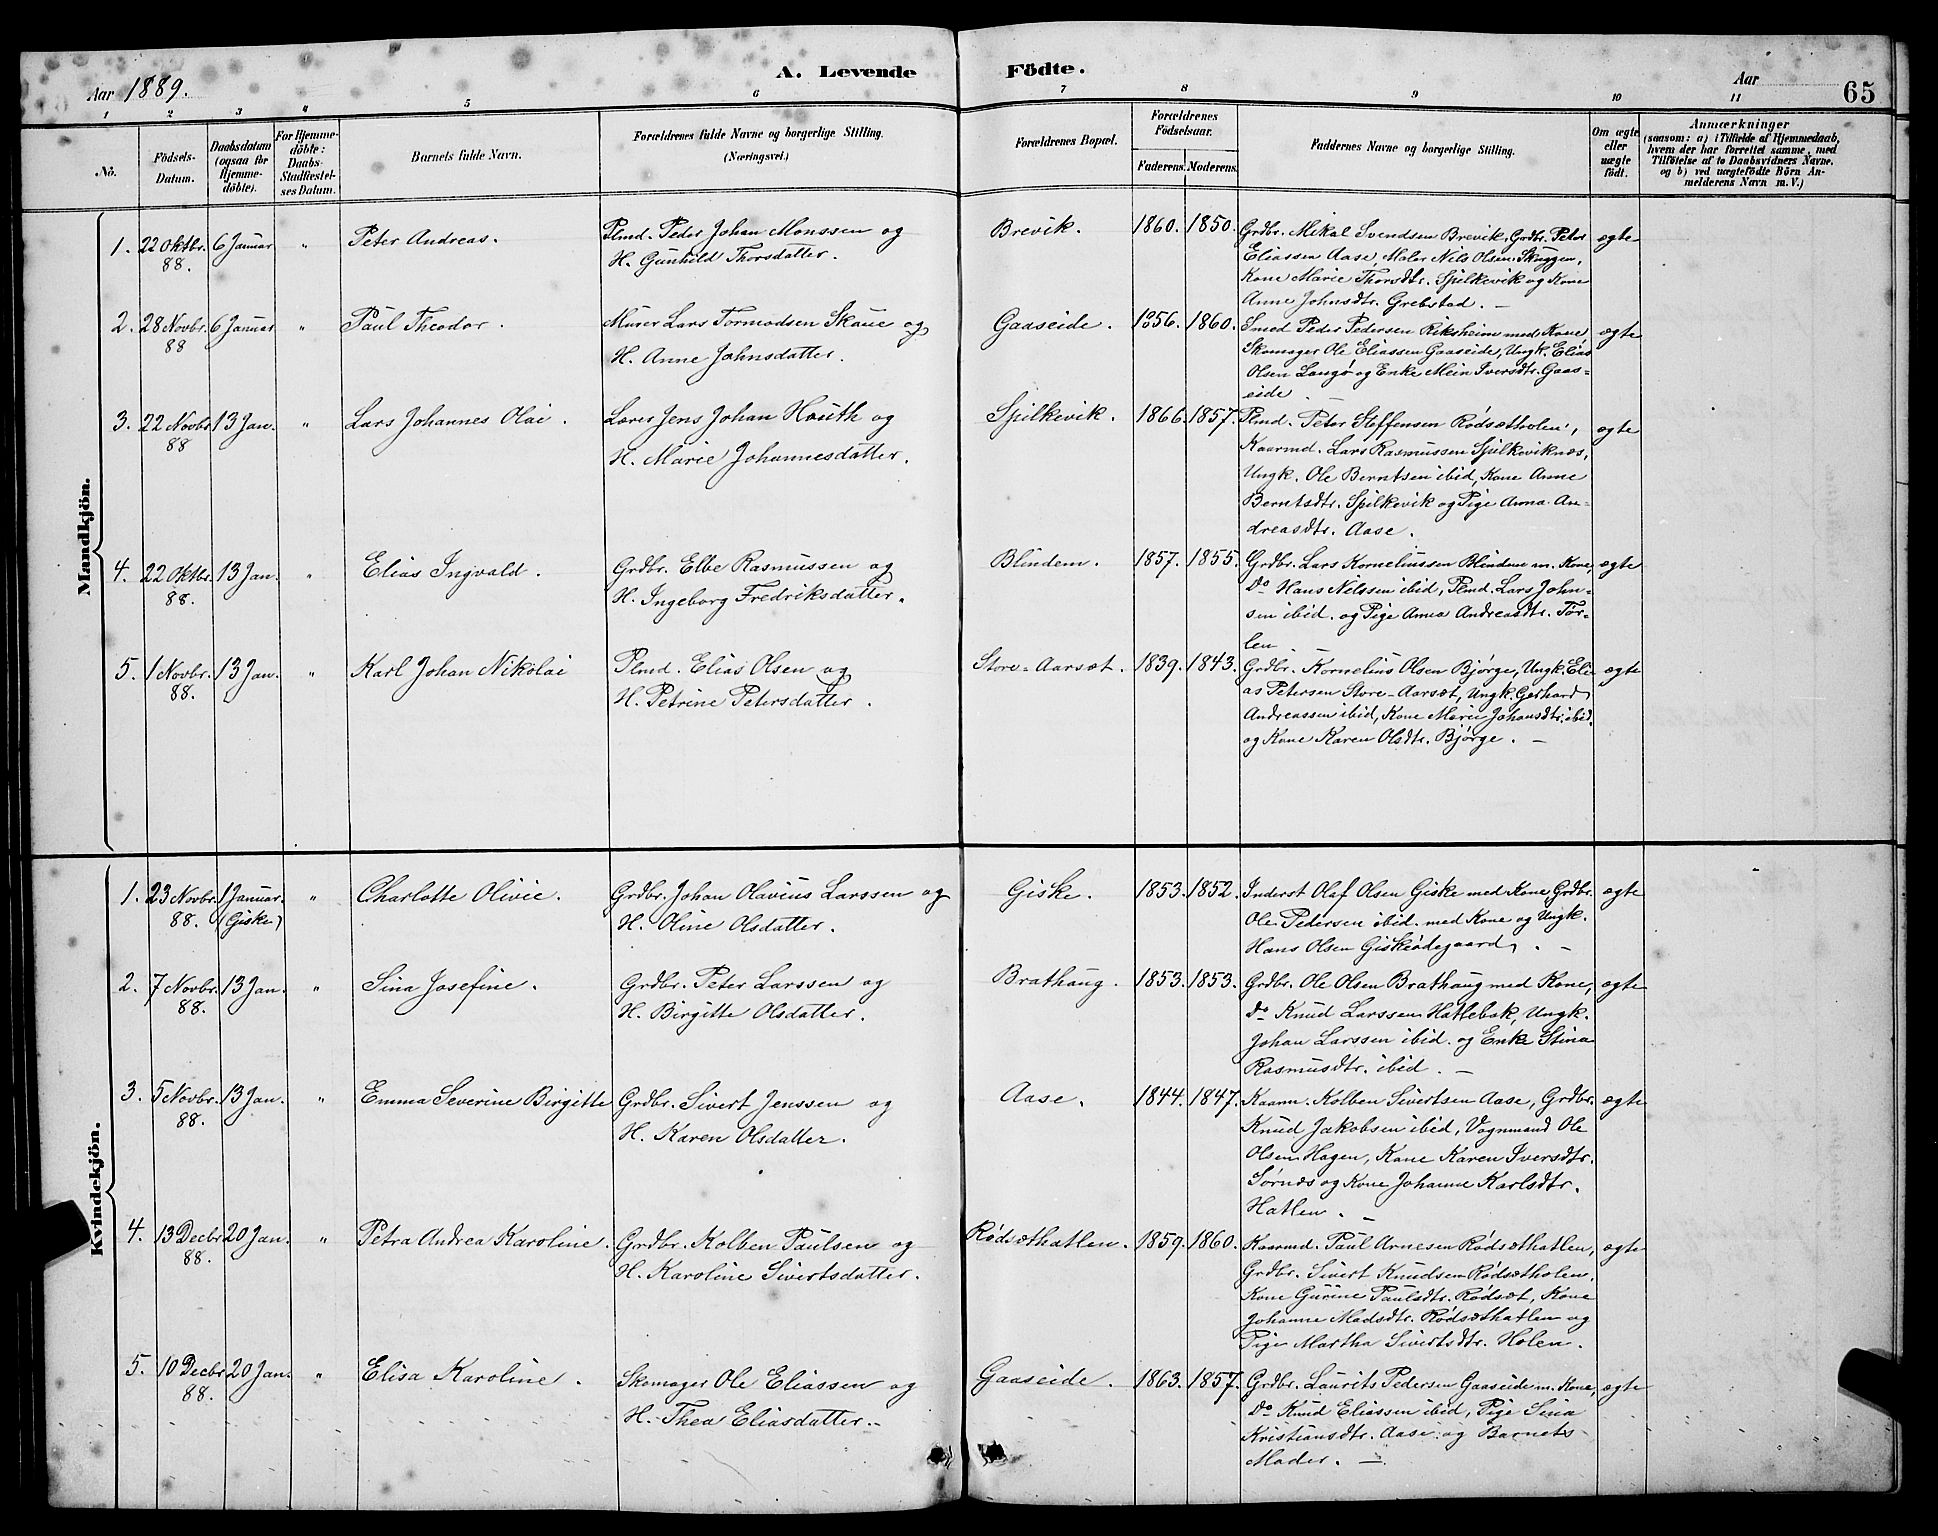 A. Levende Födte.
Aar 1889.
Aar
65
1 2 3 4 5 6 7 8 9 10 11
No.
Födsels-Datum.
Daabsdatum (ogsaa for Hjemmedöbte).
For Hjemmedöbte: Daabs-Stadfæstelses Datum.
Barnets fulde Navn.
Forældrenes fulde Navne og borgerlige Stilling.
(Næringsvei.)
Forældrenes Bopæl.
Forældrenes Födselsaar.
Faderens. Moderens.
Faddernes Navne og borgerlige Stilling.
Om ægte eller uægte födt.
Anmærkninger
(saasom: a) i Tilfælde af Hjemmedaab, hvem der har forrettet samme, med Tilföielse af to Daabsvidners Navne. og b) ved uægtefödte Börn Anmelderens Navn m. V.)
Mandkjön.
1. 22 Oktbr. 6 Januar " Peter Andreas. Plmd. Peder Johan Monssen og Brevik. 1860. 1850. Grdbr. Mikal Svendsen Brevik, Grdbr. Peter ægte
88. H. Gunhild Thorsdatter. Eliassen Aase, Maler Nils Olsen Skuggen,
Kone Marie Thorsdtr. Spilkevik og Kone
Anne Johnsdtr. Grebstad. —
2. 28 Novbr. 6 Januar " Paul Theodor. Murer Lars Tormodsen Skaue og Gaaseide. 1856. 1860. Smed Peder Pedersen Riksheim med Kone, ægte
88 H. Anne Johnsdatter. Skomager Ole Eliassen Gaaseide, Ungk. Elias
Olsen Langø og Enke Mein Iversdtr. Gaas-
eide.
3. 22 Novbr. 13 Jan. " Lars Johannes Olai. Lærer Jens Johan Houth og Spilkevik. 1866. 1857. Plmd. Peter Steffensen Rødsætholen, ægte
88 H. Marie Johannesdatter. Kaarmd. Lars Rasmussen Spilkeviknæs,
Ungk. Ole Berntsen ibid, Kone Anne
Berntsdtr. Spilkevik og Pige Anna An-
dreasdtr. Aase.
4. 22 Oktbr. 13 Jan. " Elias Ingvald. Grdbr. Elbe Rasmussen og Blindem. 1857. 1855. Grdbr. Lars Korneliussen Blindem m. Kone, ægte
88. H. Ingeborg Fredriksdatter. Do Hans Nilssen ibid, Plmd. Lars John-
sen ibid. og Pige Anna Andreasdtr. Tør-
len. —
5. 1 Novbr. 13 Jan. " Karl Johan Nikolai Plmd. Elias Olsen og Store-Aarsæt. 1839. 1843. Grdbr. Kornelius Olsen Bjørge, Ungk. Eli- ægte
88. H. Petrine Petersdatter. as Petersen Store-Aarsæt, Ungk. Gerhard
Andreassen ibid, Kone Marie Johansdtr. ibid.
og Kone Karen Olsdtr. Bjørge. —
Kvindekjön.
1. 23 Novbr. 1 Januar. " Charlotte Olivie. Grdbr. Johan Olavius Larssen og Giske. 1853. 1852. Inderst Olaf Olsen Giske med Kone Grdbr. ægte
88. (Giske) H. Oline Olsdatter. Ole Pedersen ibid. med Kone og Ungk.
Hans Olsen Giskeødegaard. —
2. 7 Novbr. 13 Jan. " Sina Josefine. Grdbr. Peter Larssen og Brathaug. 1853. 1853. Grdbr. Ole Olsen Brathaug med Kone, ægte
88. H. Birgitte Olsdatter. Do Knud Larssen Hatlebak, Ungk.
Johan Larssen ibid. og Enke Stina
Rasmusdtr. ibid. —
3. 5 Novbr. 13 Jan. " Emma Severine Birgitte Grdbr. Sivert Jenssen og Aase. 1844. 1847. Kaarm. Kolben Sivertsen Aase, Grdbr. ægte
88. H. Karen Olsdatter. Knud Jakobsen ibid, Vognmand Ole
Olsen Hagen, Kone Karen Iversdtr.
Sørnæs og Kone Johanne Karlsdtr.
Hatlen. —
4. 13 Decbr. 20 Jan. " Petra Andrea Karoline. Grdbr. Kolben Paulsen og Rødsæthatlen. 1859. 1860. Kaarmd. Paul Arnesen Rødsæthatlen, ægte
88. H. Karoline Sivertsdatter. Grdbr. Sivert Knudsen Rødsætholen.
Kone Gurine Paulsdtr. Rødsæt, Kone
Johanne Madsdtr. Rødsæthatlen og
Pige Martha Sivertsdtr. Holen.
5. 10 Decbr. 20 Jan. " Elisa Karoline. Skomager Ole Eliassen og Gaaseide. 1863. 1857. Grdbr. Laurits Pedersen Gaaseide m. Kone, ægte
88. H. Thea Eliasdatter. Do Knud Eliassen ibid, Pige Sina
Kristiansdtr. Aase. og Barnets
Moder. —